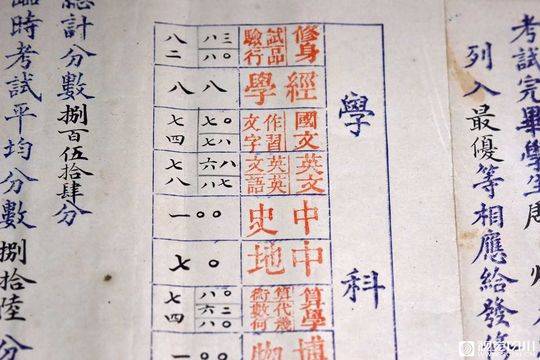 考試完畢學生周
列入最優等相應給發
學科
修身 品行 試驗 八二
經學 八八
國文 習字 作文 七四
英文 英語 英文 七八
中史 一〇〇
中地 七〇
算學 幾何 代數 算術 七四
博物
總計分數捌百伍拾肆分
臨時考試平均分數捌拾陸分